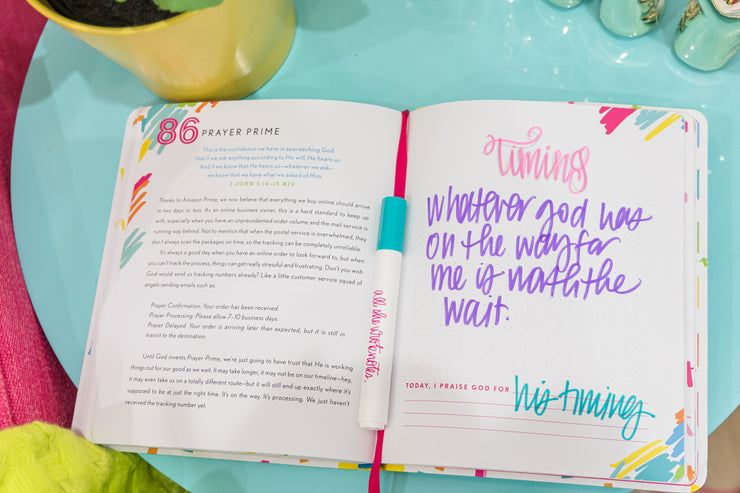 86 PRAYER PRIME
This is the confidence we have in approaching God:
that if we ask anything according to His will, He hears us.
And if we know that He hears us—whatever we ask—
we know that we have what we asked of Him.
1 JOHN 5:14–15 NIV
Thanks to Amazon Prime, we now believe that everything we buy online should arrive
in two days or less. As an online business owner, this is a hard standard to keep up
with, especially when you have an unprecedented order volume and the mail service is
running way behind. Not to mention that when the postal service is overwhelmed, they
don't always scan the packages on time, so the tracking can be completely unreliable.
It's always a good day when you have an online order to look forward to, but when
you can't track the process, things can get really stressful and frustrating. Don't you wish
God would send us tracking numbers already? Like a little customer service squad of
angels sending emails such as:
Prayer Confirmation: Your order has been received.
Prayer Processing: Please allow 7–10 business days.
Prayer Delayed: Your order is arriving later than expected, but it is still in
transit to the destination.
Until God invents Prayer Prime, we're just going to have trust that He is working
things out for our good as we wait. It may take longer, it may not be on our timeline—hey,
it may even take us on a totally different route—but it will still end up exactly where it's
supposed to be at just the right time. It's on the way. It's processing. We just haven't
received the tracking number yet.
all she wrote notes.
timing
whatever god has
on the way for
me is worth the
wait.
TODAY, I PRAISE GOD FOR his timing